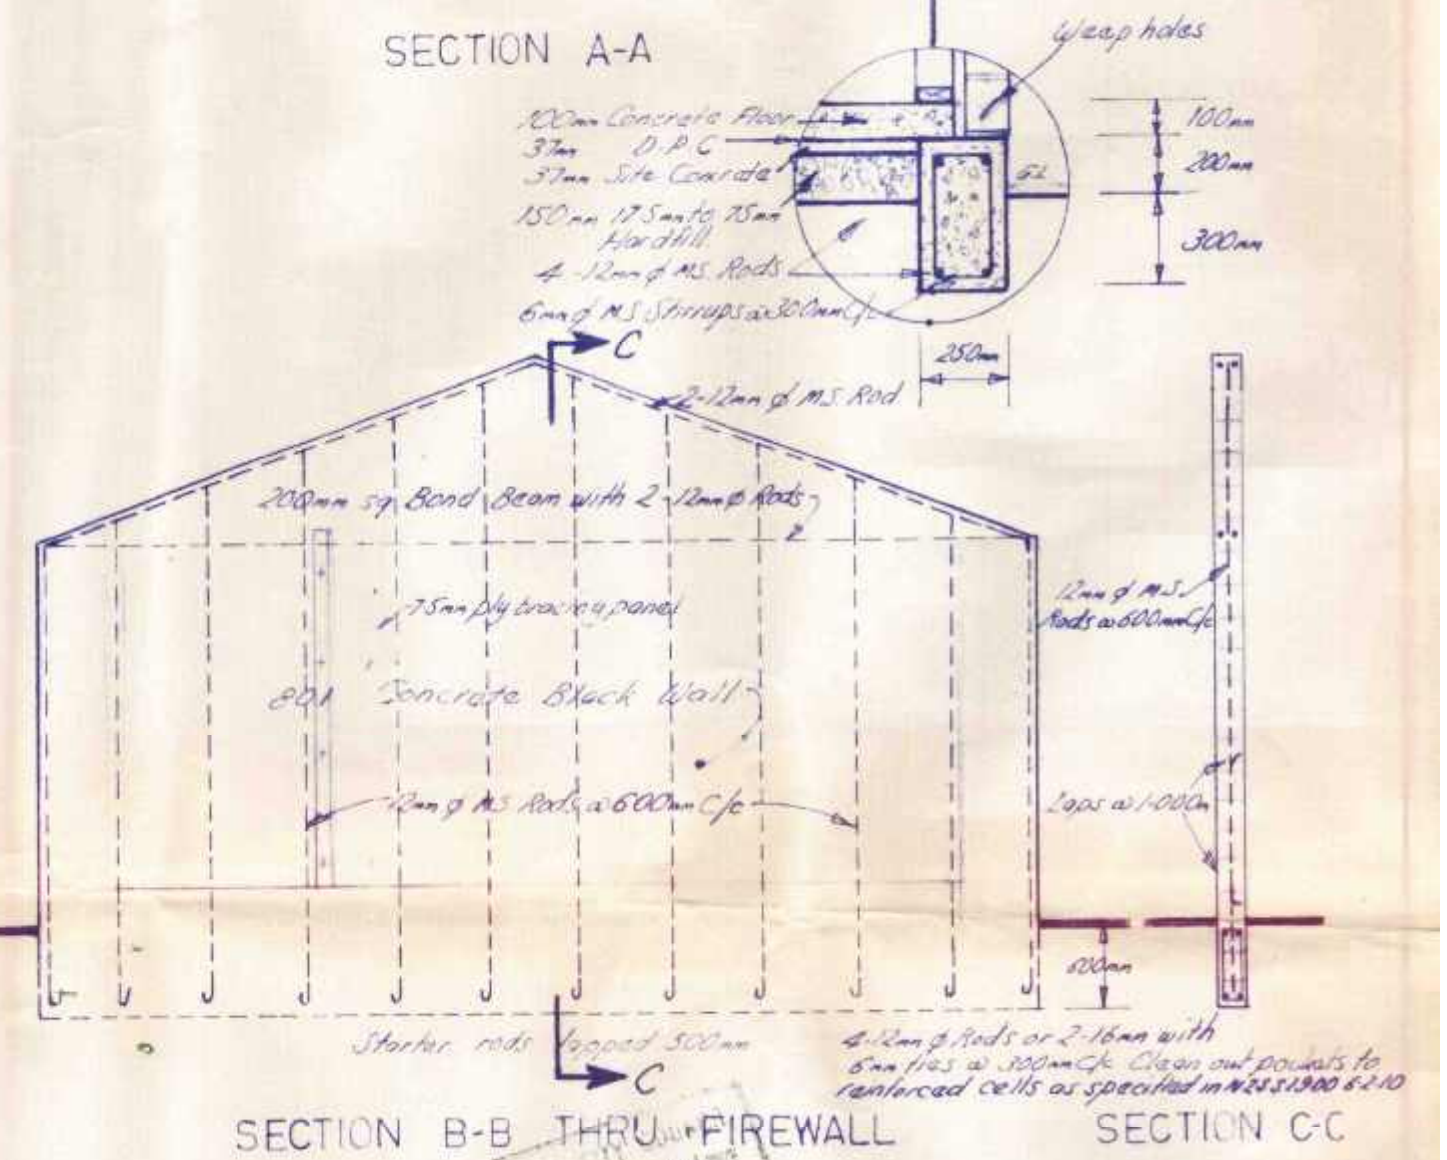 SECTION A-A
Weep holes
100mm Concrete Floor
37mm D.P.C
37mm Site Concrete
150mm 17.5mm to 75mm
Hardfill
4-12mm ϕ M.S. Rods
6mm ϕ M.S Stirrups @ 300mm C/c
100mm
200mm
GL
300mm
250mm
C
2-12mm ϕ M.S. Rod
200mm sq. Bond Beam with 2-12mm ϕ Rods
75mm ply bracing panel
12mm ϕ M.S.
Rods @ 600mm C/c
801 Concrete Block Wall
12mm ϕ M.S Rods @ 600mm C/c
Laps @ 1.000m
600mm
Starter rods lapped 500mm
C
4-12mm ϕ Rods or 2-16mm with
6mm ties @ 300mm C/c Clean out pockets to
reinforced cells as specified in NZSS1900 6.2.10
SECTION B-B THRU FIREWALL
SECTION C-C